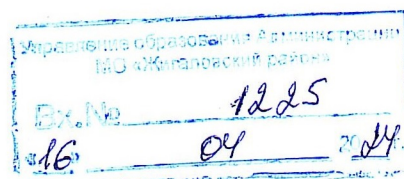 Управление образования Администрации
МО «Жигаловский район»
Вх.№ 1225
«16» 04 2024г.